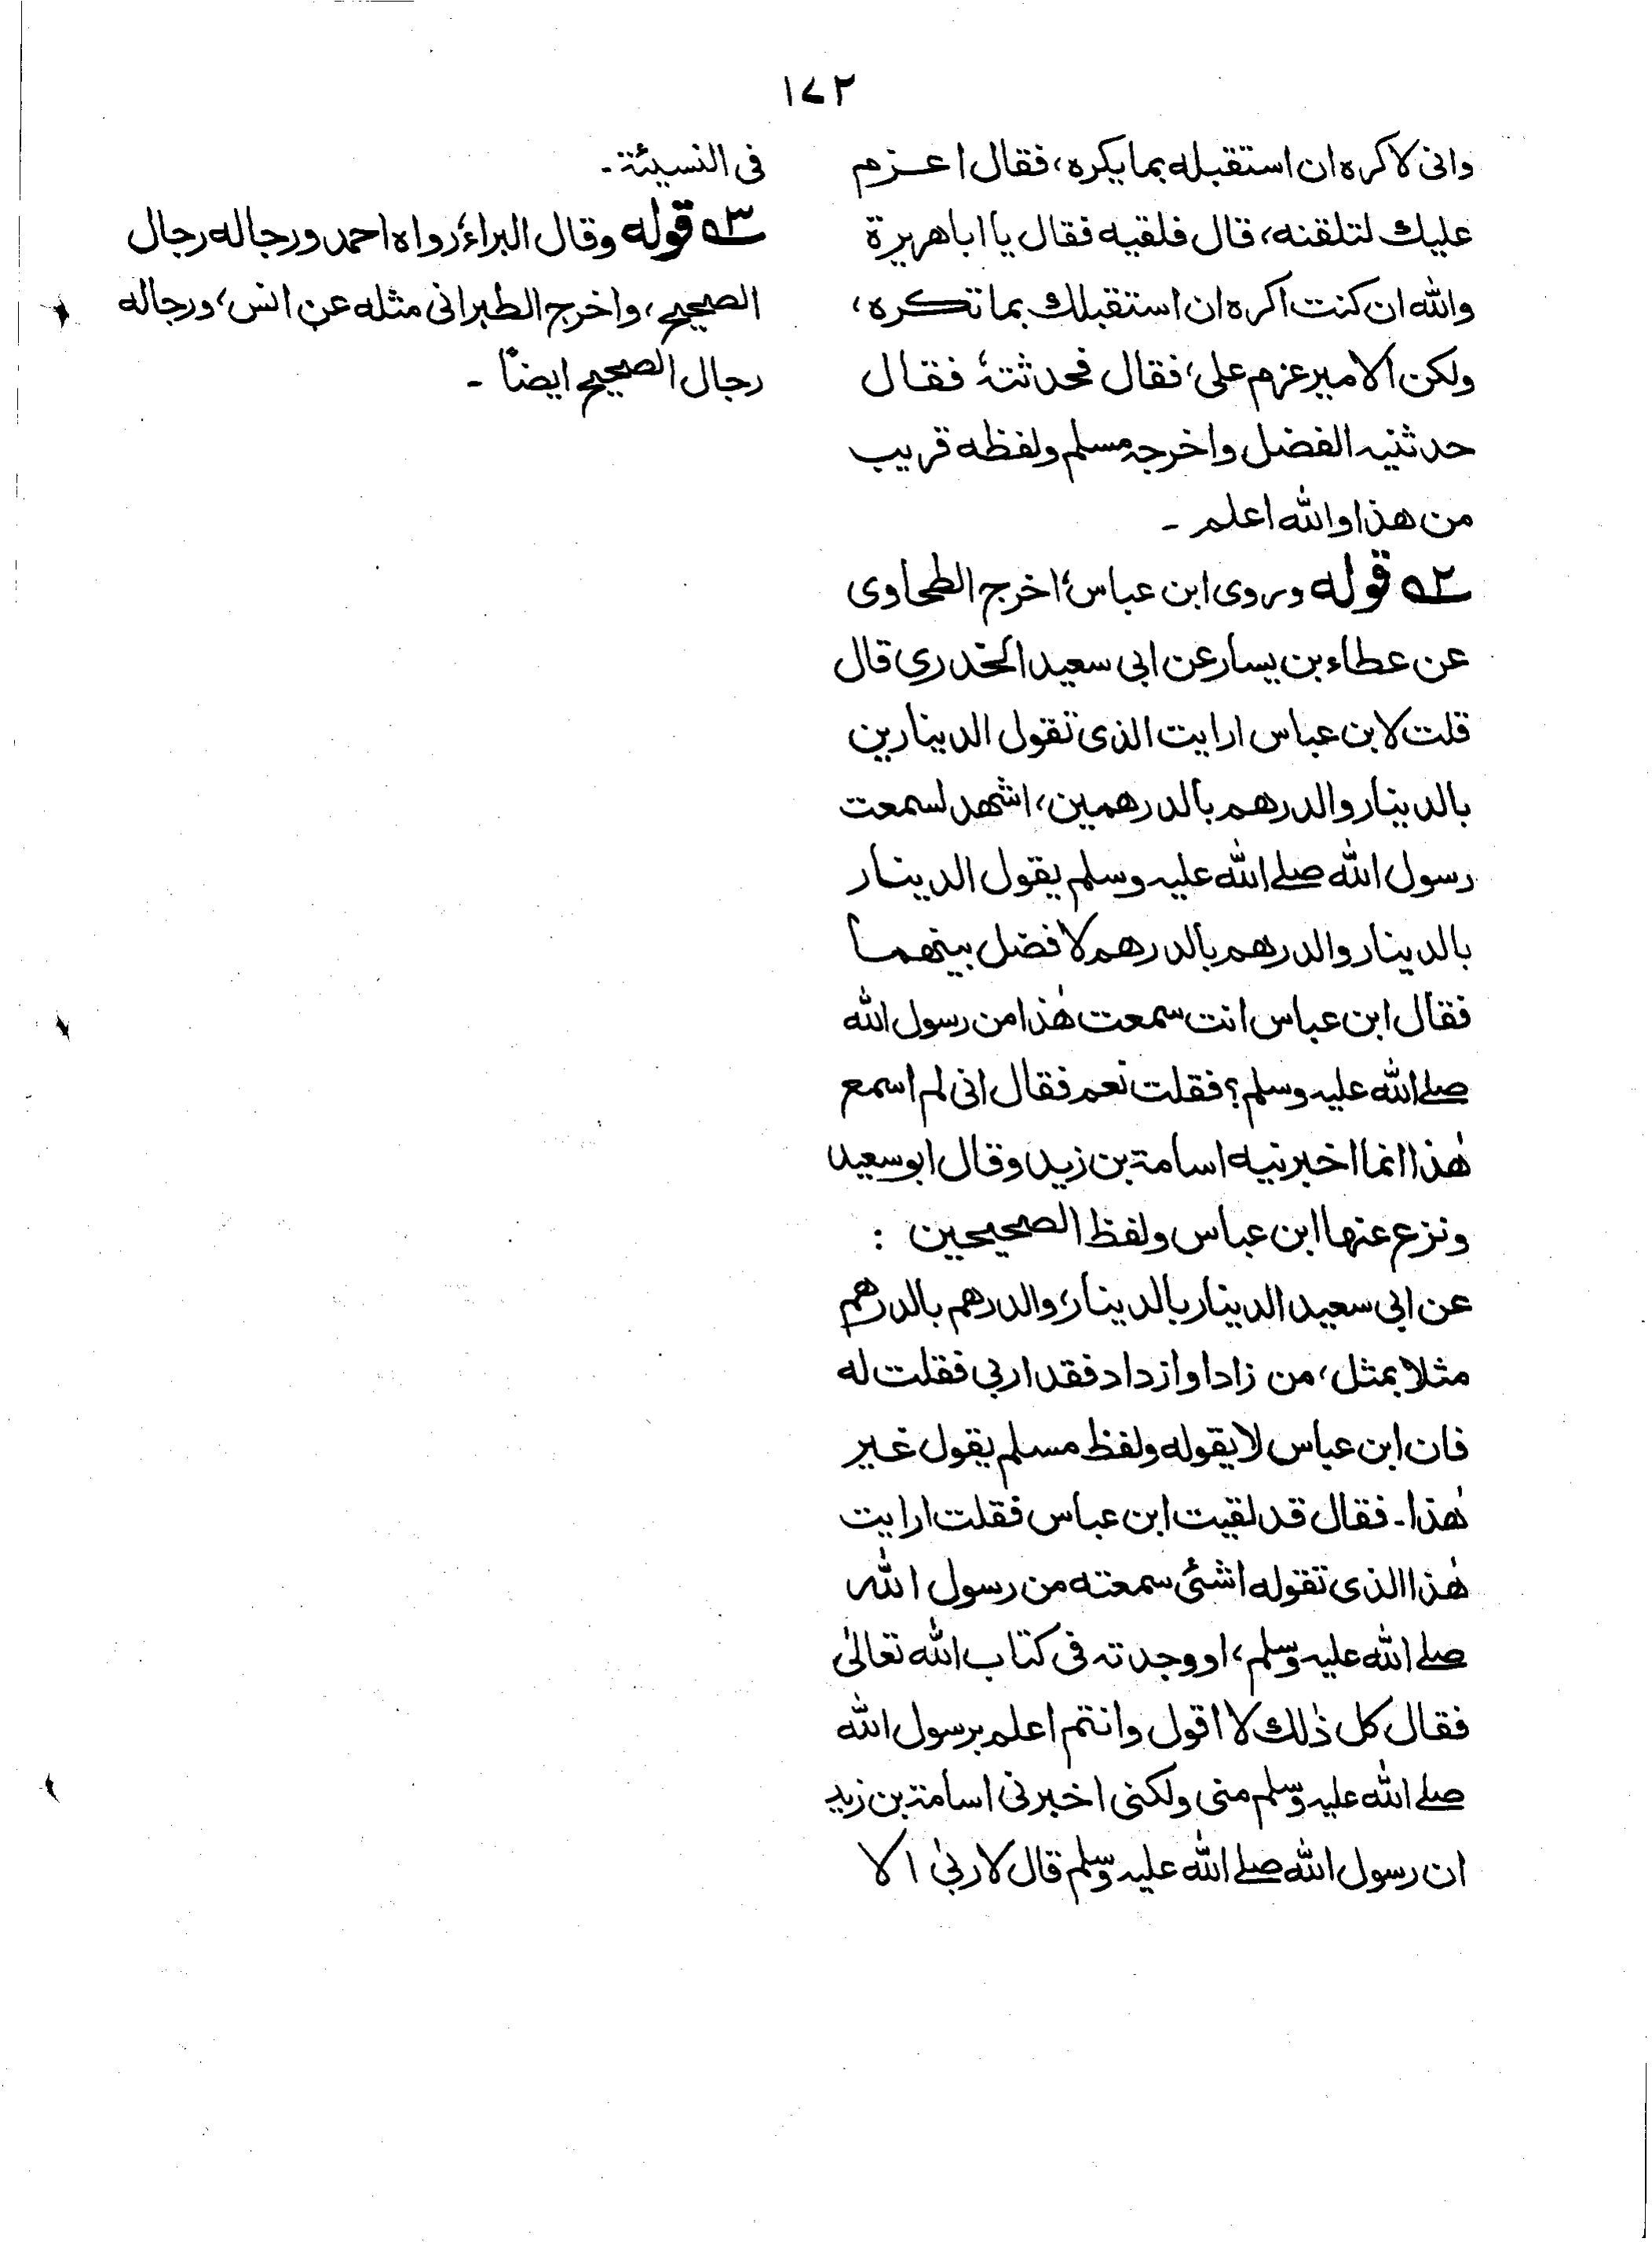 ١٧٢
وانى لاكره ان استقبله بما يكره، فقال اعزم
عليك لتلقنه، قال فلقيه فقال يا ابا هريرة
والله ان كنت اكره ان استقبلك بما تكره،
ولكن الامير عزم على، فقال فحدثته فقال
حدثنيه الفضل واخرجه مسلم ولفظه قريب
من هذا والله اعلم ـ
٥٢ قوله وروى ابن عباس؛ اخرج الطحاوى
عن عطاء بن يسار عن ابى سعيد الخدرى قال
قلت لابن عباس ارايت الذى تقول الدينارين
بالدينار والدرهم بالدرهمين، اشهد لسمعت
رسول الله صلے الله عليه وسلم يقول الدينار
بالدينار والدرهم بالدرهم لا فضل بينهما
فقال ابن عباس انت سمعت هٰذا من رسول الله
صلے الله عليه وسلم؟ فقلت نعم فقال انى لم اسمع
هٰذا انما اخبرنيه اسامة بن زيد وقال ابو سعيد
ونزع عنها ابن عباس ولفظ الصحيحين :
عن ابى سعيد الدينار بالدينار، والدرهم بالدرهم
مثلا بمثل، من زاد او ازداد فقد اربى فقلت له
فان ابن عباس لا يقوله ولفظ مسلم يقول غير
هٰذا ـ فقال قد لقيت ابن عباس فقلت ارايت
هٰذا الذى تقوله اشئ سمعته من رسول الله
صلے الله عليه وسلم، او وجدته فى كتاب الله تعالىٰ
فقال كل ذٰلك لا اقول وانتم اعلم برسول الله
صلے الله عليه وسلم منى ولكنى اخبرنى اسامة بن زيد
ان رسول الله صلے الله عليه وسلم قال لا ربىٰ الا
فى النسيئة ـ
٥٣ قوله وقال البراء؛ رواه احمد ورجاله رجال
الصحيح، واخرج الطبرانى مثله عن انس، ورجاله
رجال الصحيح ايضاً ـ